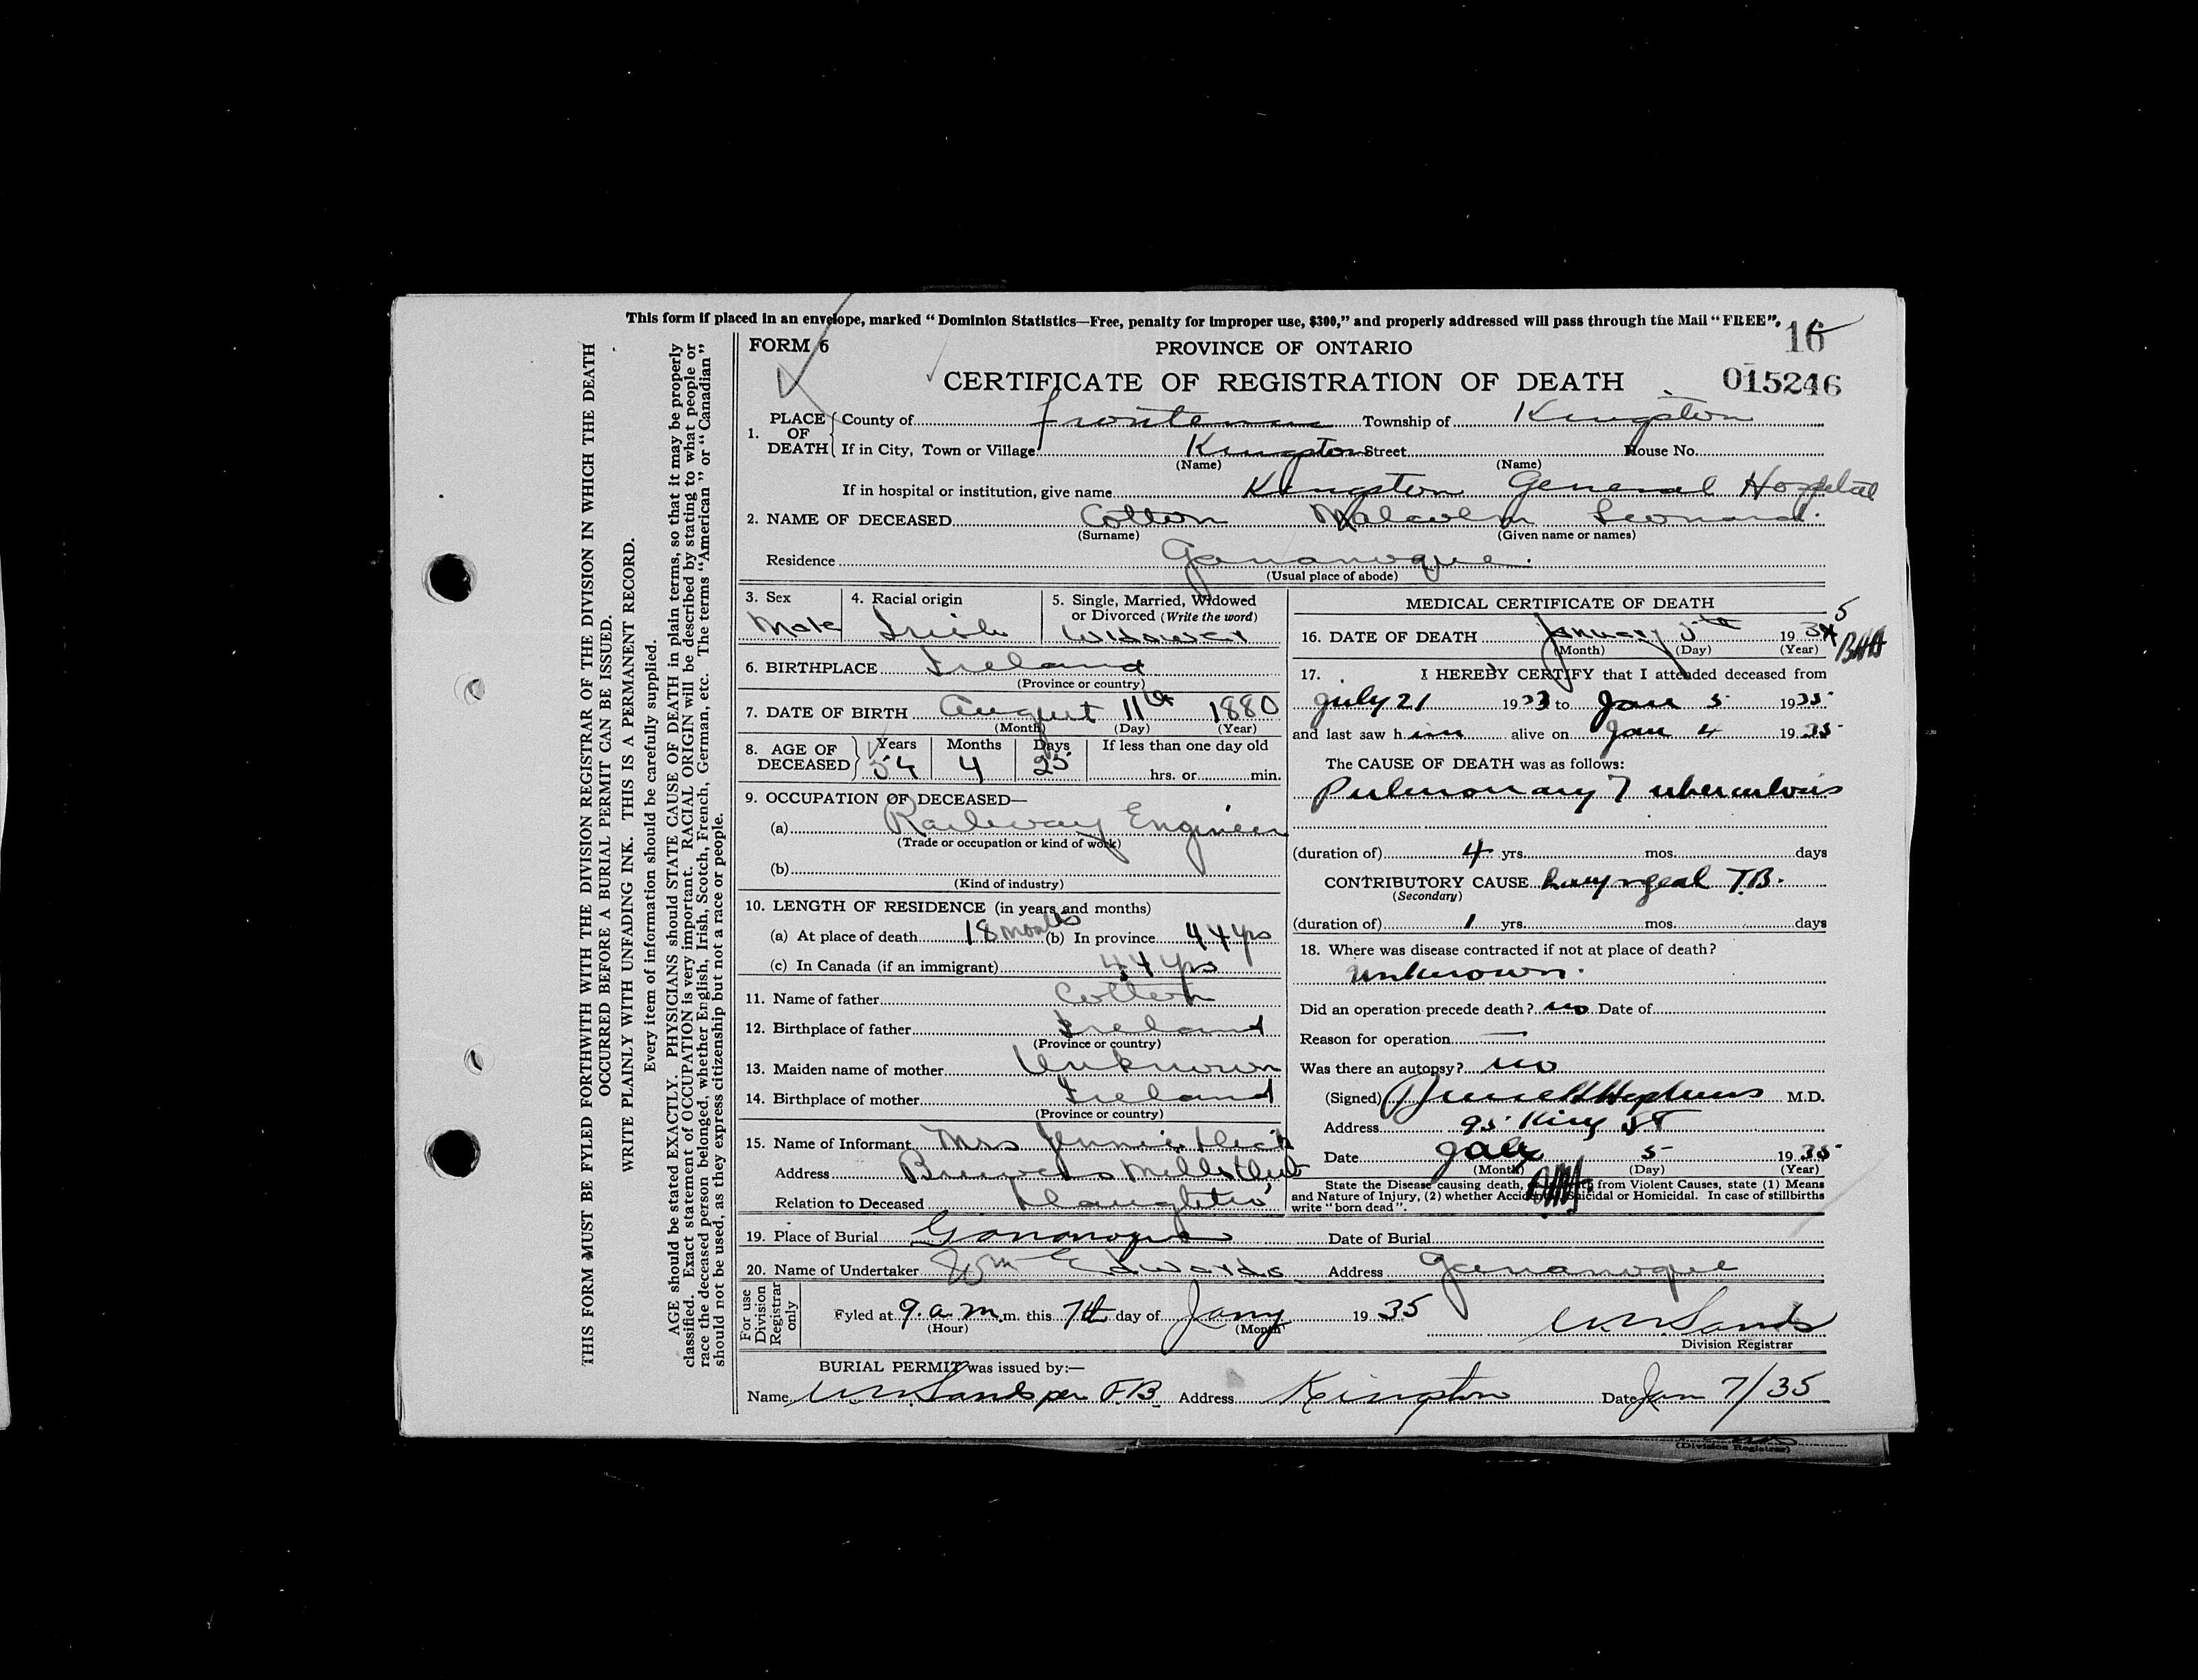 This form if placed in an envelope, marked "Dominion Statistics—Free, penalty for improper use, $300," and properly addressed will pass through the Mail "FREE".
16
FORM 6
PROVINCE OF ONTARIO
CERTIFICATE OF REGISTRATION OF DEATH
015246
1. PLACE OF DEATH County of Frontenac Township of Kingston
If in City, Town or Village Kingston Street House No.
(Name) (Name)
If in hospital or institution, give name Kingston General Hospital
2. NAME OF DECEASED Cotton Malcolm Leonard.
(Surname) (Given name or names)
Residence Gananoque.
(Usual place of abode)
3. Sex Male
4. Racial origin Irish
5. Single, Married, Widowed or Divorced (Write the word) Widower
6. BIRTHPLACE Ireland
(Province or country)
7. DATE OF BIRTH August 11th 1880
(Month) (Day) (Year)
8. AGE OF DECEASED Years 54 Months 4 Days 25 If less than one day old
hrs. or min.
9. OCCUPATION OF DECEASED—
(a) Railway Engineer
(Trade or occupation or kind of work)
(b)
(Kind of industry)
10. LENGTH OF RESIDENCE (in years and months)
(a) At place of death 18 months (b) In province 44 yrs
(c) In Canada (if an immigrant) 44 yrs
11. Name of father Cotton
12. Birthplace of father Ireland
(Province or country)
13. Maiden name of mother Unknown
14. Birthplace of mother Ireland
(Province or country)
15. Name of Informant Mrs Jennie
Address Brewers Mills
Relation to Deceased Daughter
MEDICAL CERTIFICATE OF DEATH
16. DATE OF DEATH January 5th 193 5
(Month) (Day) (Year)
BHH
17. I HEREBY CERTIFY that I attended deceased from
July 21 1933 to Jan 5 1935
and last saw him alive on Jan 4 1935
The CAUSE OF DEATH was as follows:
Pulmonary Tuberculosis
(duration of) 4 yrs. mos. days
CONTRIBUTORY CAUSE Laryngeal T.B.
(Secondary)
(duration of) 1 yrs. mos. days
18. Where was disease contracted if not at place of death?
unknown.
Did an operation precede death? no Date of
Reason for operation —
Was there an autopsy? no
(Signed) Hopkins M.D.
Address 95 King St
Date 5 1935
(Month) (Day) (Year)
State the Disease causing death, from Violent Causes, state (1) Means
and Nature of Injury, (2) whether Accidental, Suicidal or Homicidal. In case of stillbirths
write "born dead".
19. Place of Burial Gananoque Date of Burial
20. Name of Undertaker Wm Edwards Address Gananoque
For use Division Registrar only
Fyled at 9. a.m. m. this 7th day of Jany 1935
(Hour) (Month)
Sands
Division Registrar
BURIAL PERMIT was issued by:—
Name Sands per F.B. Address Kingston Date Jan 7/35
THIS FORM MUST BE FYLED FORTHWITH WITH THE DIVISION REGISTRAR OF THE DIVISION IN WHICH THE DEATH
OCCURRED BEFORE A BURIAL PERMIT CAN BE ISSUED.
WRITE PLAINLY WITH UNFADING INK. THIS IS A PERMANENT RECORD.
Every item of information should be carefully supplied.
AGE should be stated EXACTLY. PHYSICIANS should STATE CAUSE OF DEATH in plain terms, so that it may be properly
classified. Exact statement of OCCUPATION is very important. RACIAL ORIGIN will be described by stating to what people or
race the deceased person belonged, whether English, Irish, Scotch, French, German, etc. The terms "American" or "Canadian"
should not be used, as they express citizenship but not a race or people.
(Division Registrar)